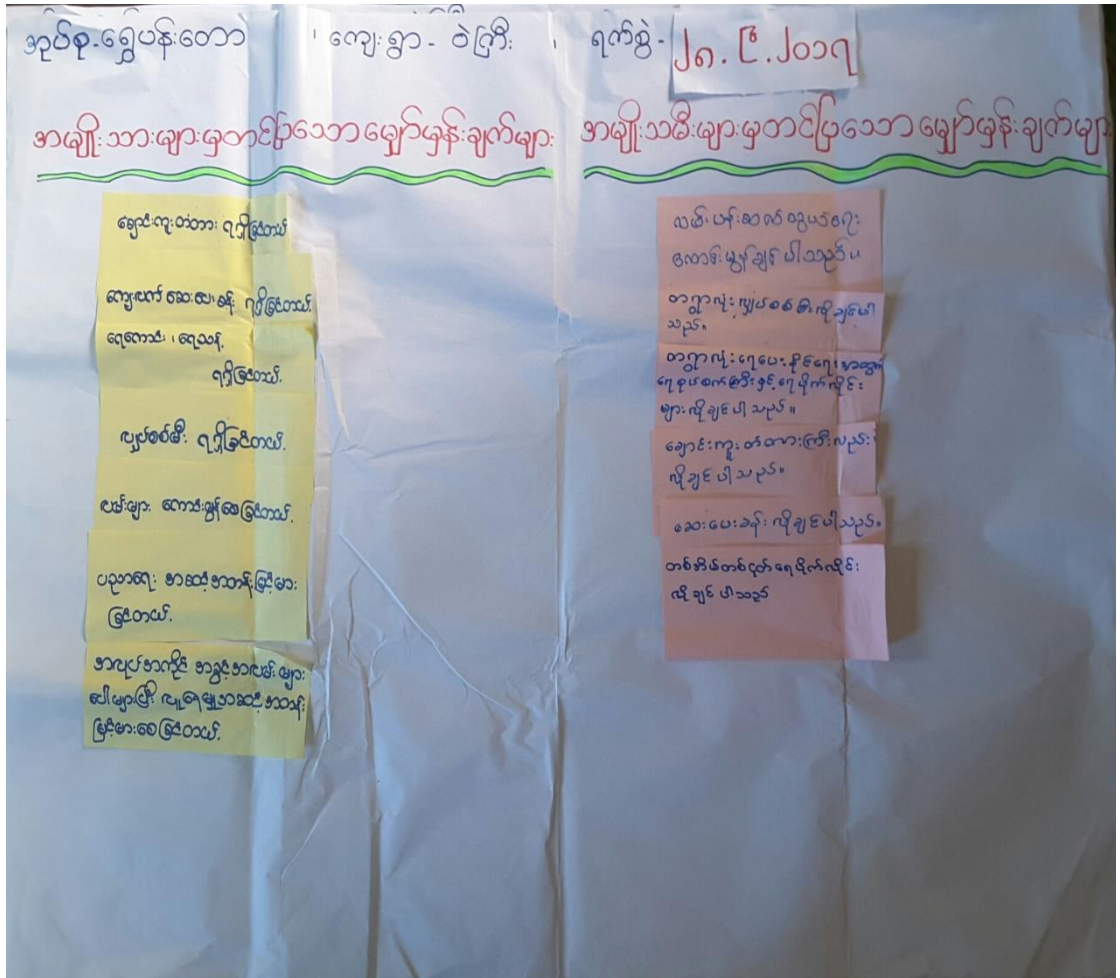 အုပ်စု-ရွှေပန်းတော ၊ ကျေးရွာ - ဝဲကြီး ၊ ရက်စွဲ - ၂၈.၉.၂၀၁၇
အမျိုးသားများမှတင်ပြသော မျှော်မှန်းချက်များ
ချောင်းကူးတံတား ရရှိခြင်တယ်
ကျေးလက် ဆေးပေးခန်း ရရှိခြင်တယ်.
ရေကောင်း ၊ ရေသန့်
ရရှိခြင်တယ်.
လျှပ်စစ်မီး ရရှိခြင်တယ်.
လမ်းများ ကောင်းမွန်စေခြင်တယ်.
ပညာရေး အဆင့်အတန်းမြင့်မား
ခြင်တယ်.
အလုပ်အကိုင် အခွင့်အလမ်းများ
ပေါများပြီး လူနေမှုအဆင့်အတန်း
မြင့်မားစေခြင်တယ်.
အမျိုးသမီးများမှတင်ပြသော မျှော်မှန်းချက်မျာ
လမ်းပန်းဆက်သွယ်ရေး
ကောင်းမွန်ချင်ပါသည်။
တရွာလုံး လျှပ်စစ်မီးလိုချင်ပါ
သည်။
တရွာလုံးရေပေးနိုင်ရေးအတွက်
ရေစုပ်စက်ကြီးနှင့် ရေပိုက်လိုင်း
များလိုချင်ပါသည်။
ချောင်းကူးတံတားကြီးလည်း
လိုချင်ပါသည်။
ဆေးပေးခန်းလိုချင်ပါသည်။
တစ်အိမ်တစ်ငုတ်ရေပိုက်လိုင်း
လိုချင်ပါသည်